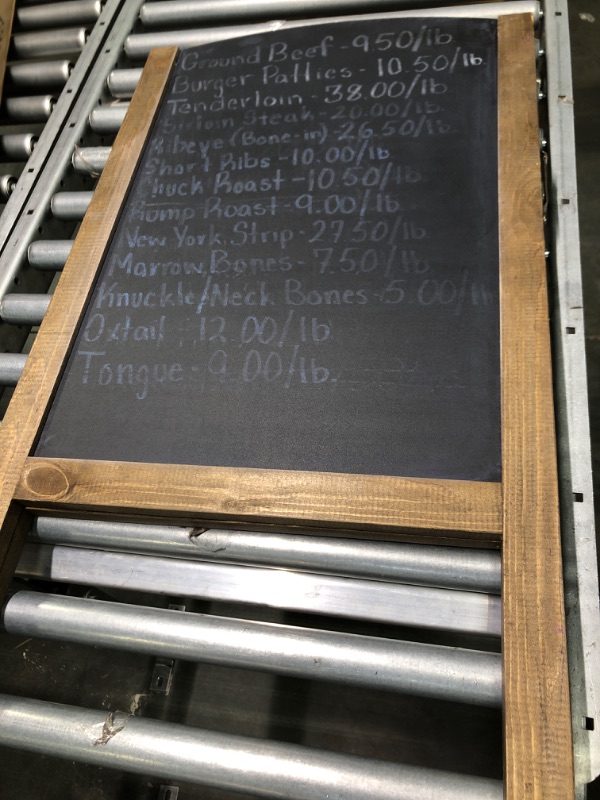 Ground Beef - 9.50/lb
Burger Patties - 10.50/lb.
Tenderloin - 38.00/lb
Sirloin Steak - 20.00/lb
Ribeye (Bone-in) - 26.50/lb
Short Ribs - 10.00/lb
Chuck Roast - 10.50/lb
Rump Roast - 9.00/lb
New York Strip - 27.50/lb
Marrow Bones - 7.50/lb
Knuckle/Neck Bones - 5.00/lb
Oxtail - 12.00/lb
Tongue - 9.00/lb.